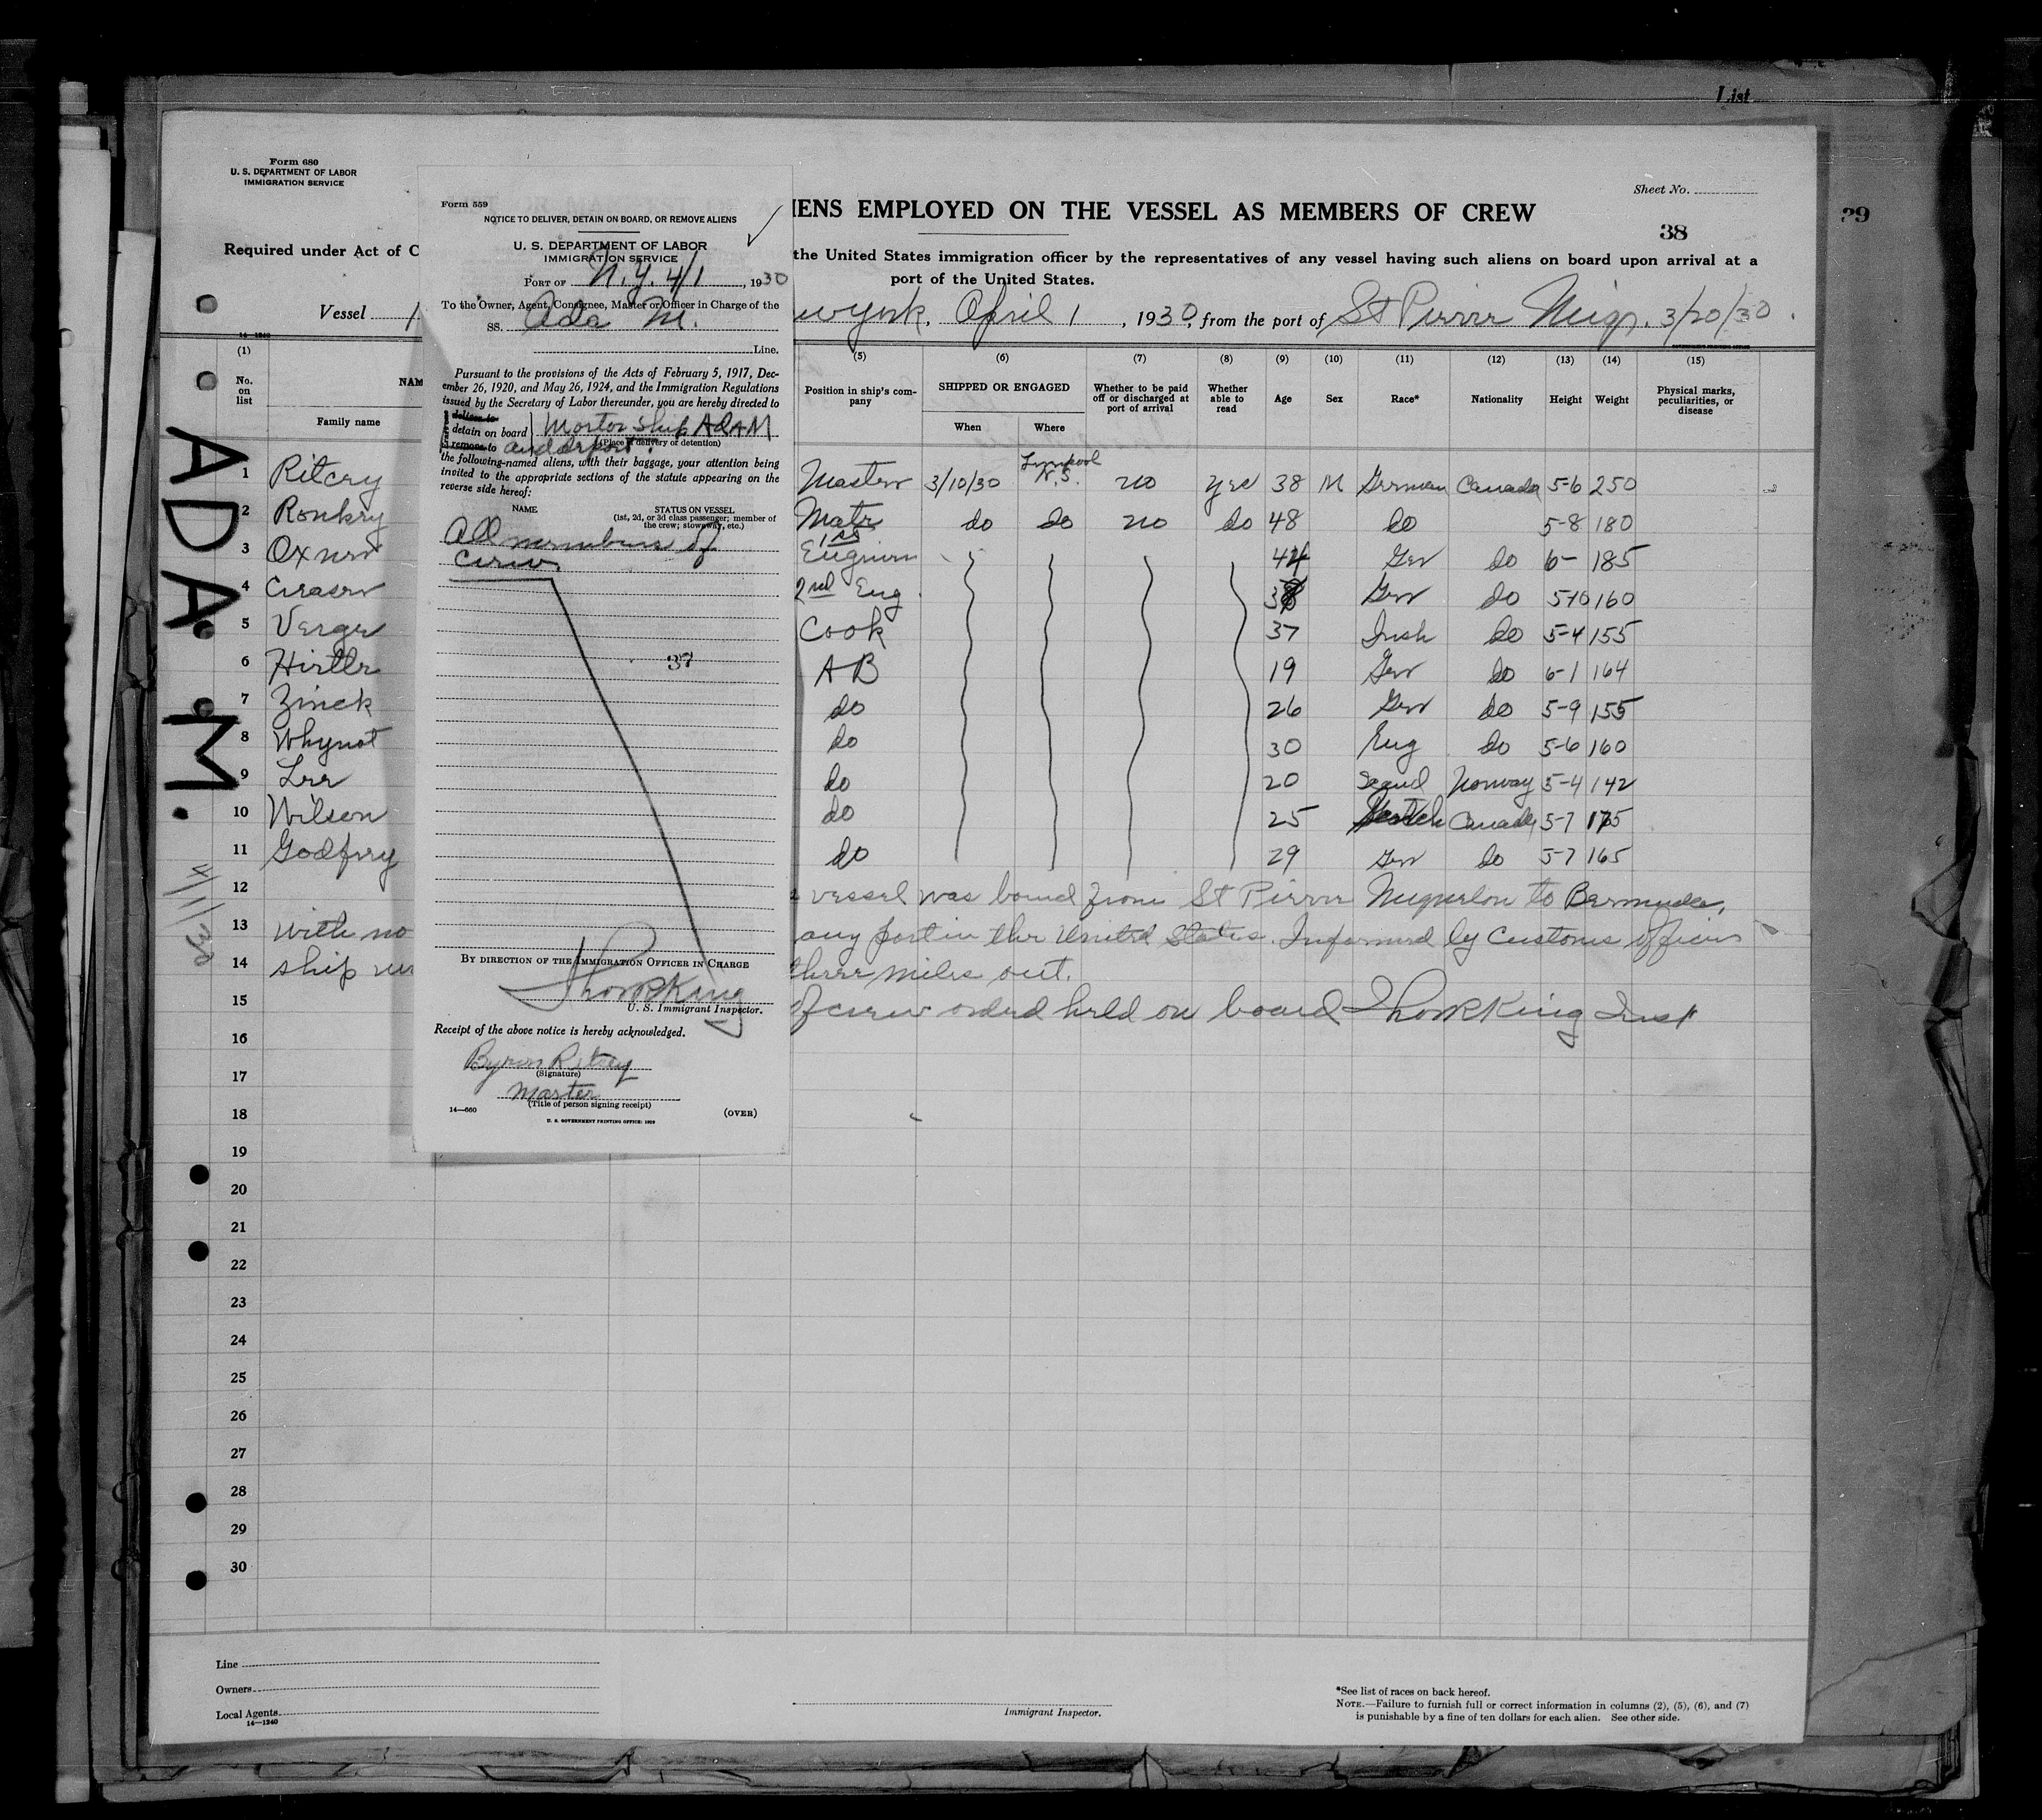 List
39
Form 680
U. S. DEPARTMENT OF LABOR
IMMIGRATION SERVICE
Sheet No.
38
IENS EMPLOYED ON THE VESSEL AS MEMBERS OF CREW
Required under Act of C
the United States immigration officer by the representatives of any vessel having such aliens on board upon arrival at a
port of the United States.
Vessel
w York, April 1, 1930, from the port of St Pierre Miqr. 3/20/30.
14—1240
GOVERNMENT PRINTING OFFICE
Form 559
NOTICE TO DELIVER, DETAIN ON BOARD, OR REMOVE ALIENS
U. S. DEPARTMENT OF LABOR
IMMIGRATION SERVICE
PORT OF N.Y. 4/1, 1930
To the Owner, Agent, Consignee, Master or Officer in Charge of the
SS. Ada M.
Line.
Pursuant to the provisions of the Acts of February 5, 1917, Dec-
ember 26, 1920, and May 26, 1924, and the Immigration Regulations
issued by the Secretary of Labor thereunder, you are hereby directed to
deliver to
detain on board Mortor Ship ADAM
remove to and deport.
(Place of delivery or detention)
the following-named aliens, with their baggage, your attention being
invited to the appropriate sections of the statute appearing on the
reverse side hereof:
NAME STATUS ON VESSEL
(1st, 2d, or 3d class passenger; member of
the crew; stowaway, etc.)
All members of
crew
37
BY DIRECTION OF THE IMMIGRATION OFFICER IN CHARGE
Thos R King
U. S. Immigrant Inspector.
Receipt of the above notice is hereby acknowledged.
Byron Ritcey
(Signature)
Master
(Title of person signing receipt)
14—660 (OVER)
U. S. GOVERNMENT PRINTING OFFICE: 1929
(1) (5) (6) (7) (8) (9) (10) (11) (12) (13) (14) (15)
No. on list
NAM
Family name
Position in ship's com-
pany
SHIPPED OR ENGAGED
When Where
Whether to be paid
off or discharged at
port of arrival
Whether
able to
read
Age Sex Race* Nationality Height Weight
Physical marks,
peculiarities, or
disease
ADA. M.
4/1/30
1 Ritcey Master 3/10/30 Liverpool N.S. no yes 38 M German Canada 5-6 250
2 Ronkey Mate do do no do 48 do 5-8 180
3 Oxner 1st Engineer 44 Ger do 6- 185
4 Creaser 2nd Eng. Ger do 5-10 160
5 Verge Cook 37 Irish do 5-4 155
6 Hirtle AB 19 Ger do 6-1 164
7 Zinck do 26 Ger do 5-9 155
8 Whynot do 30 Eng do 5-6 160
9 Lee do 20 Scand Norway 5-4 142
10 Wilson do 25 Scotch Canada 5-7 175
11 Godfrey do 29 Ger do 5-7 165
12 vessel was bound from St Pierre Miquelon to Bermuda,
13 with no any port in the United States. Informed by Customs officers
14 ship three miles out.
15 of crew orded held on board Thos R King Inst
16
17
18
19
20
21
22
23
24
25
26
27
28
29
30
Line
Owners
Local Agents
14—1240
Immigrant Inspector.
*See list of races on back hereof.
NOTE.—Failure to furnish full or correct information in columns (2), (5), (6), and (7)
is punishable by a fine of ten dollars for each alien. See other side.